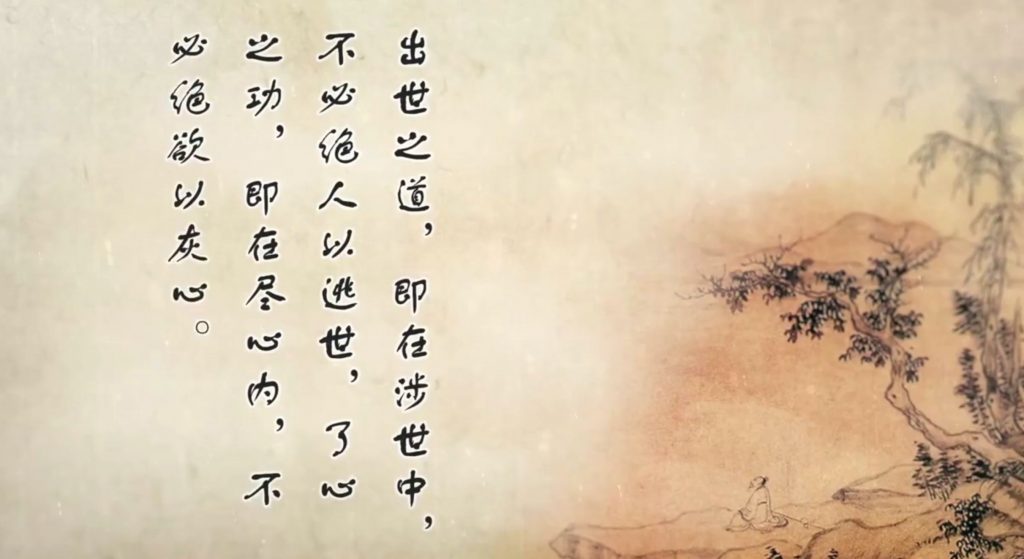 出世之道，即在涉世中，
不必绝人以逃世，了心
之功，即在尽心内，不
必绝欲以灰心。